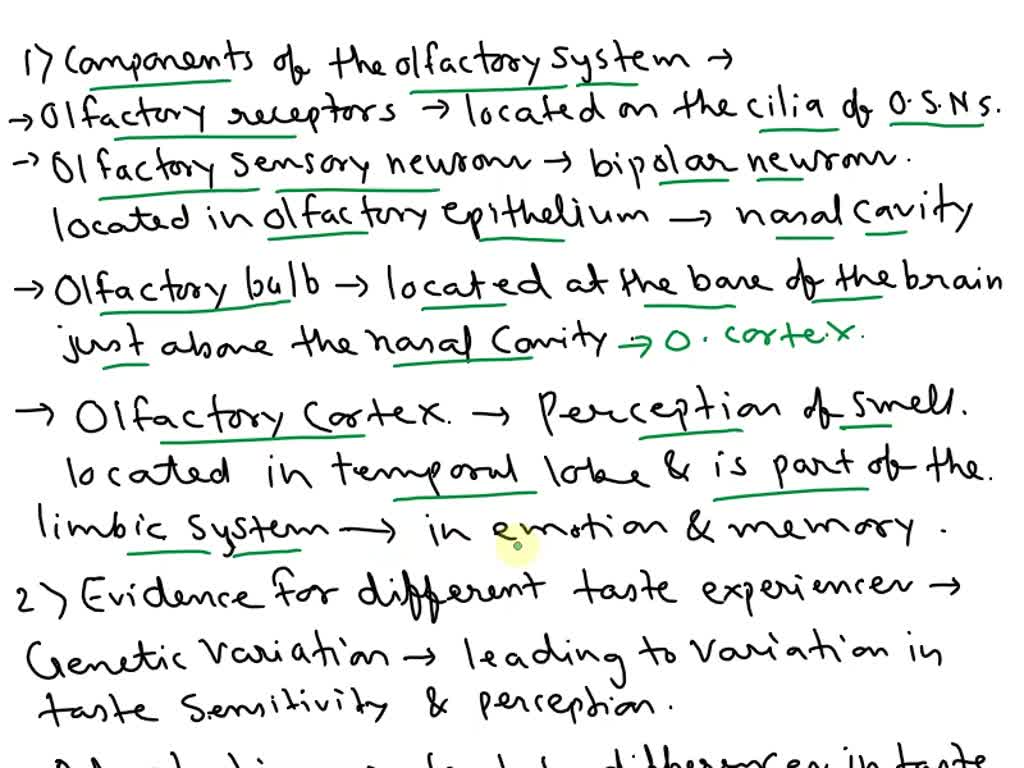 1) Components of the olfactory system →
→ Olfactory receptors → located on the cilia of O.S.N s.
→ Olfactory sensory neuron → bipolar neuron.
located in olfactory epithelium → nasal cavity
→ Olfactory bulb → located at the base of the brain
just above the nasal cavity → O. cortex.
→ Olfactory cortex. → Perception of smell.
located in temporal lobe & is part of the.
limbic system → in emotion & memory.
2) Evidence for different taste experiences →
Genetic variation → leading to variation in
taste sensitivity & perception.
differences in taste